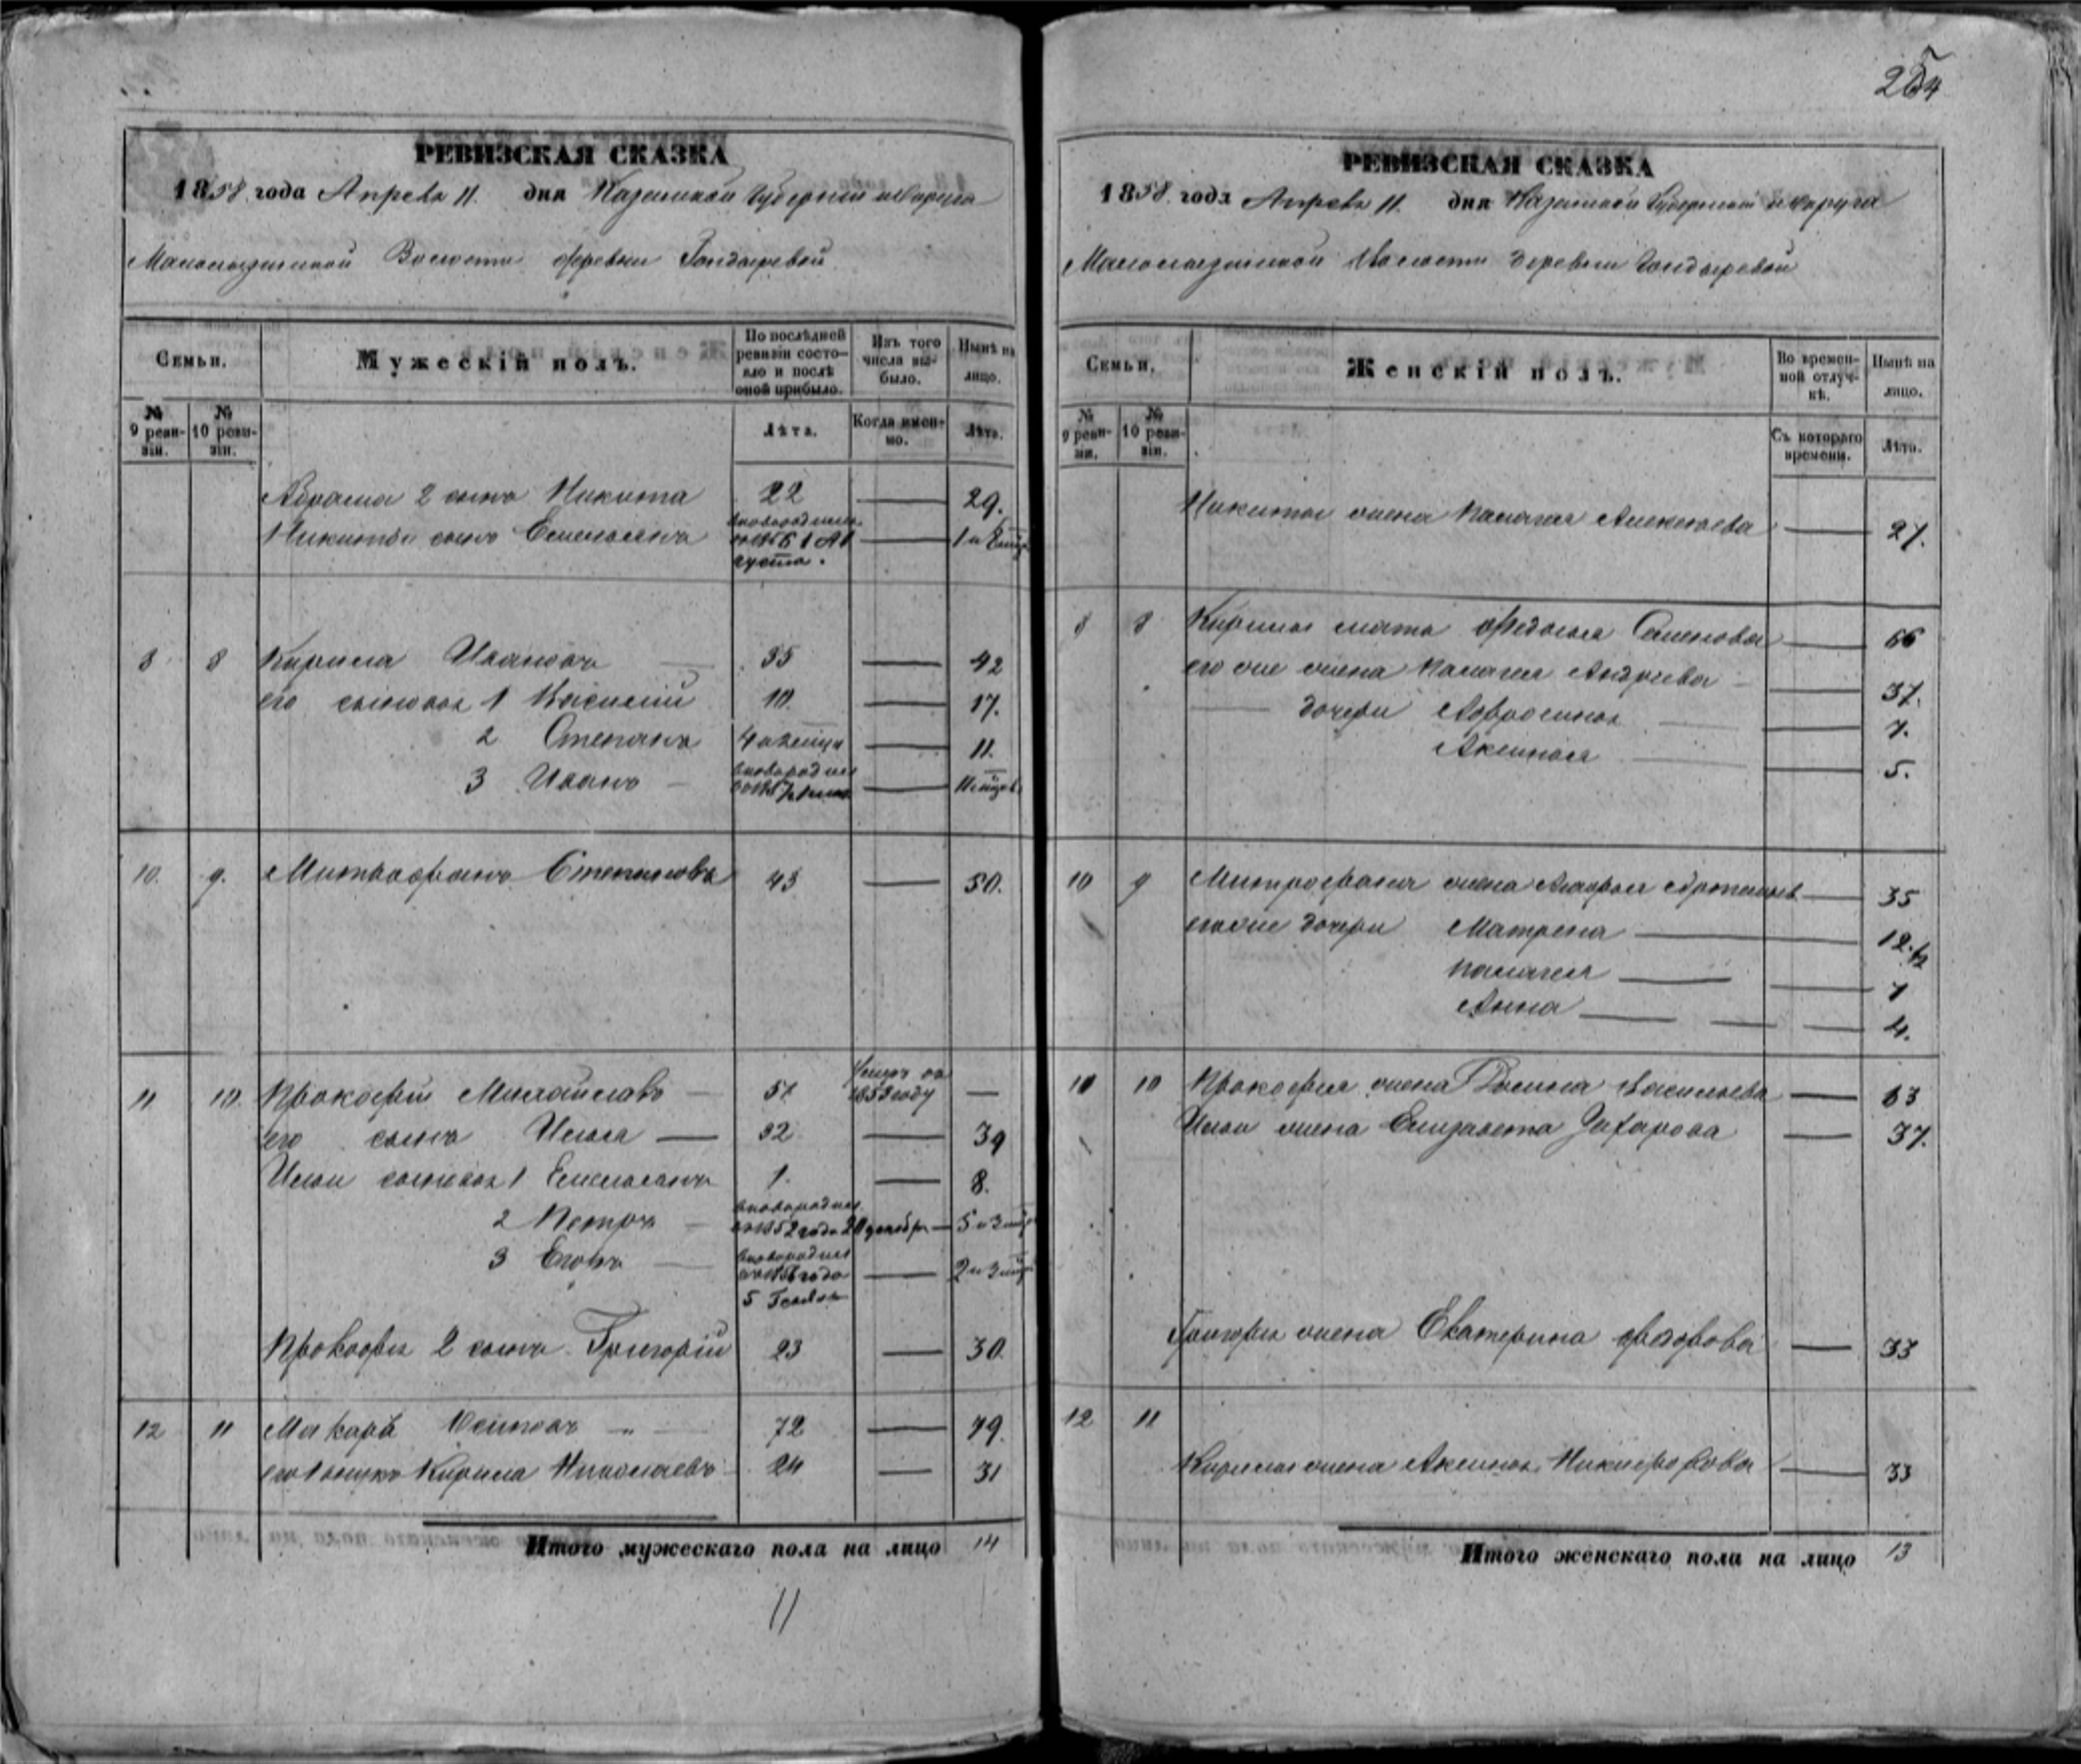 254
РЕВИЗСКАЯ СКАЗКА
1858 года Апреля 11 дня Казанской Губернии и Округа
Волости деревни
Семьи.
Мужескій полъ.
По послѣдней ревизіи состояло и послѣ оной прибыло.
Изъ того числа выбыло.
Нынѣ на лицо.
№ 9 ревизіи.
№ 10 ревизіи.
Лѣта.
Когда именно.
Лѣта.
Абрама 2 сынъ Никита 22 — 29.
Никиты сынъ Емельянъ новорожден 1 Августа. — 1 и 8
8 8 Кирила Ивановъ — 35 — 42
его сыновья 1 Василій 10 — 17.
2 Степанъ 4 — 11.
3 Иванъ —
10. 9. Митрофанъ Степановъ 43 — 50.
11 10. Прокофій — 51 1853 году —
его сынъ Илья — 32 — 39
Ильи сыновья 1 Емельянъ 1. — 8.
2 Петръ — 1852 года 20 декабря — 5 и 3
3 Егоръ — 1856 года 5 — 2 и 3
Прокофья 2 сынъ Григорій 23 — 30.
12 11 Макаръ Осиповъ „ — 72 — 79.
его внукъ Кирила Николаевъ 24 — 31
Итого мужескаго пола на лицо 14
11
РЕВИЗСКАЯ СКАЗКА
1858 года Апреля 11. дня Казанской Губернии и Округа
Волости деревни
Семьи.
Женскій полъ.
Во временной отлучкѣ.
Нынѣ на лицо.
№ 9 ревизіи.
№ 10 ревизіи.
Съ котораго времени.
Лѣта.
Никиты жена Палагея Алексеева — 27.
8 8 Кирилы мать Федосья Семенова — 66
его же жена Палагея Андреева — 37.
— дочери Афросинья — 7.
Аксинья — 5.
10 9 Митрофана жена Марфья — 35
его же дочери Матрена — 12.
Палагея — 7
Анна — 4.
10 Прокофья жена Василиева — 63
Ильи жена Елизавета Захарова — 37.
Григорья жена Екатерина Федорова — 33
12 11
Кирилы жена Аксинья Никифорова — 33
Итого женскаго пола на лицо 13